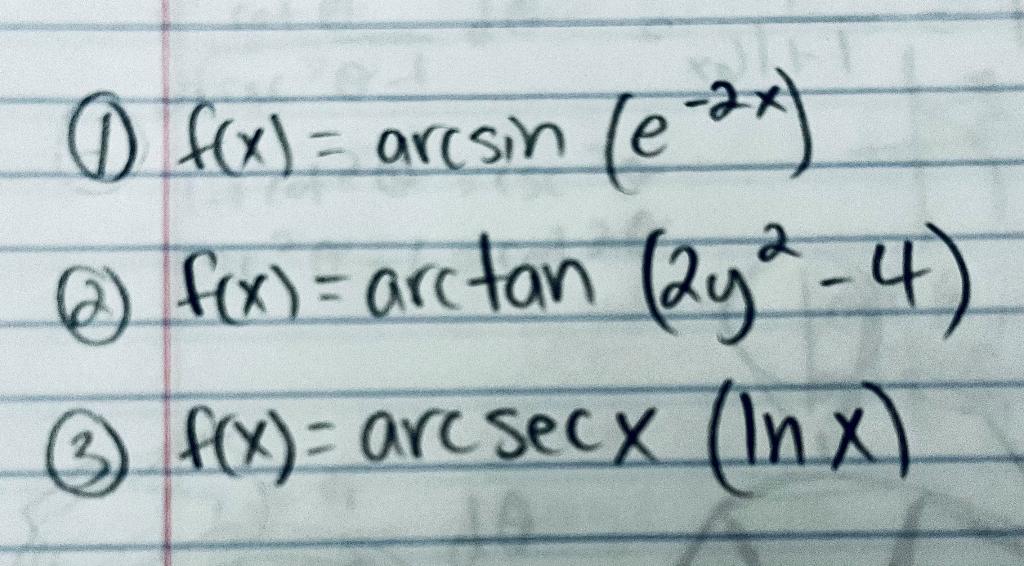 ① f(x) = arcsin (e^-2x)
② f(x) = arctan (2y² - 4)
③ f(x) = arcsecx (ln x)